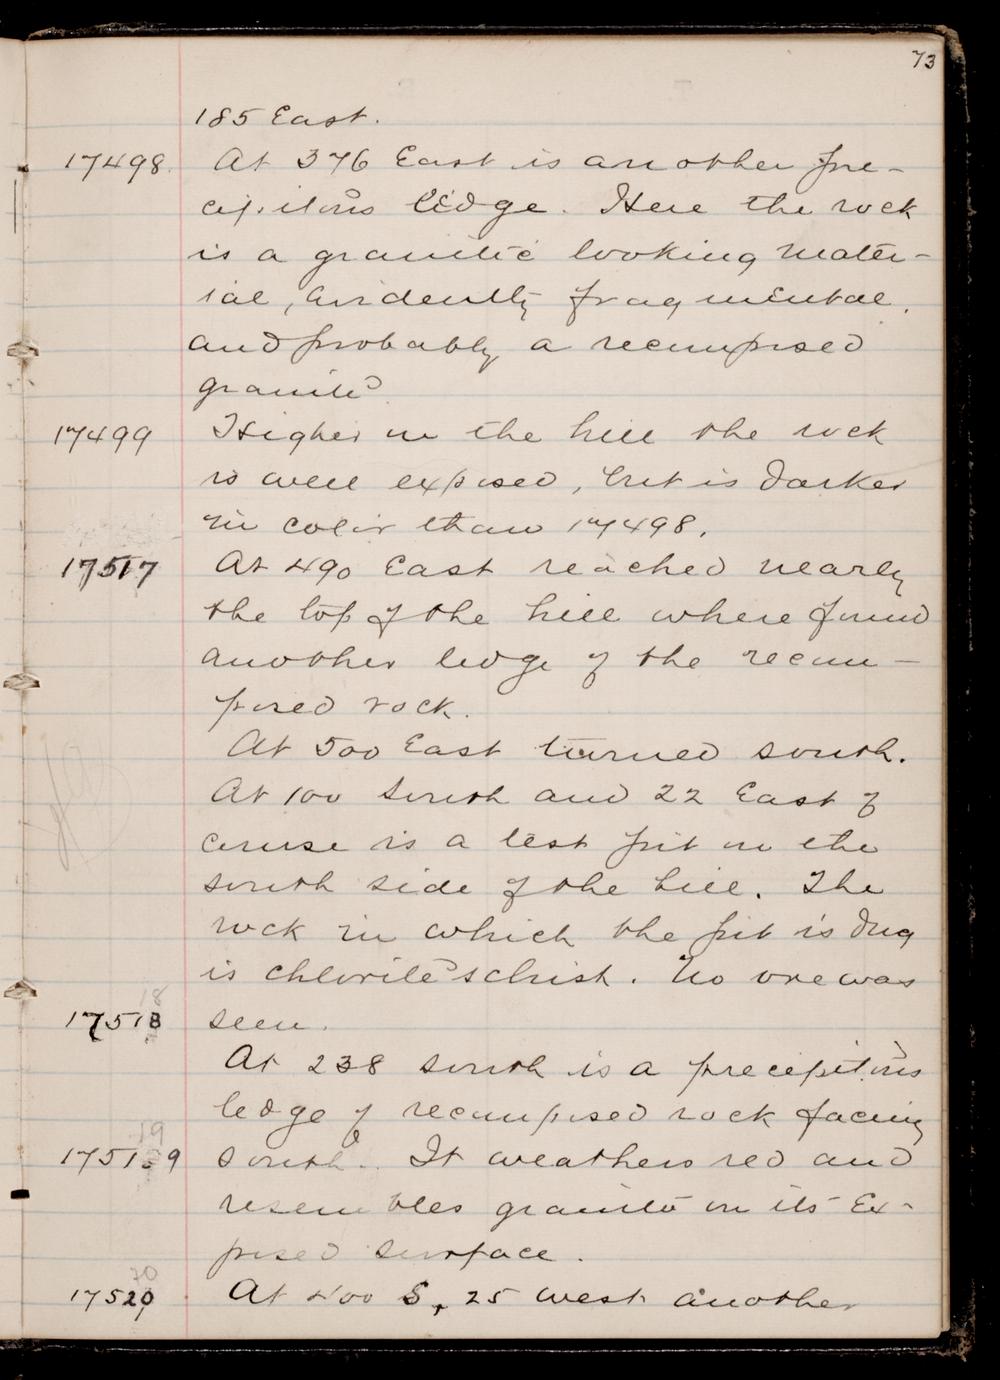 73
185 East.
17498 At 376 East is another pre-
cipitous ledge. Here the rock
is a granitic looking mater-
ial, evidently fragmental,
and probably a recomposed
granite
17499 Higher on the hill the rock
is well exposed, but is darker
in color than 17498.
17517 At 490 East reached nearly
the top of the hill where found
another ledge of the recom-
posed rock.
At 500 East turned south.
At 100 South and 22 East of
course is a test pit on the
south side of the hill. The
rock in which the pit is dug
is chlorite schist. No ore was
17518 seen.
At 238 south is a precipitous
ledge of recomposed rock facing
17519 south. It weathers red and
resembles granite on its ex-
posed surface.
17520 At 400 S, 25 west another